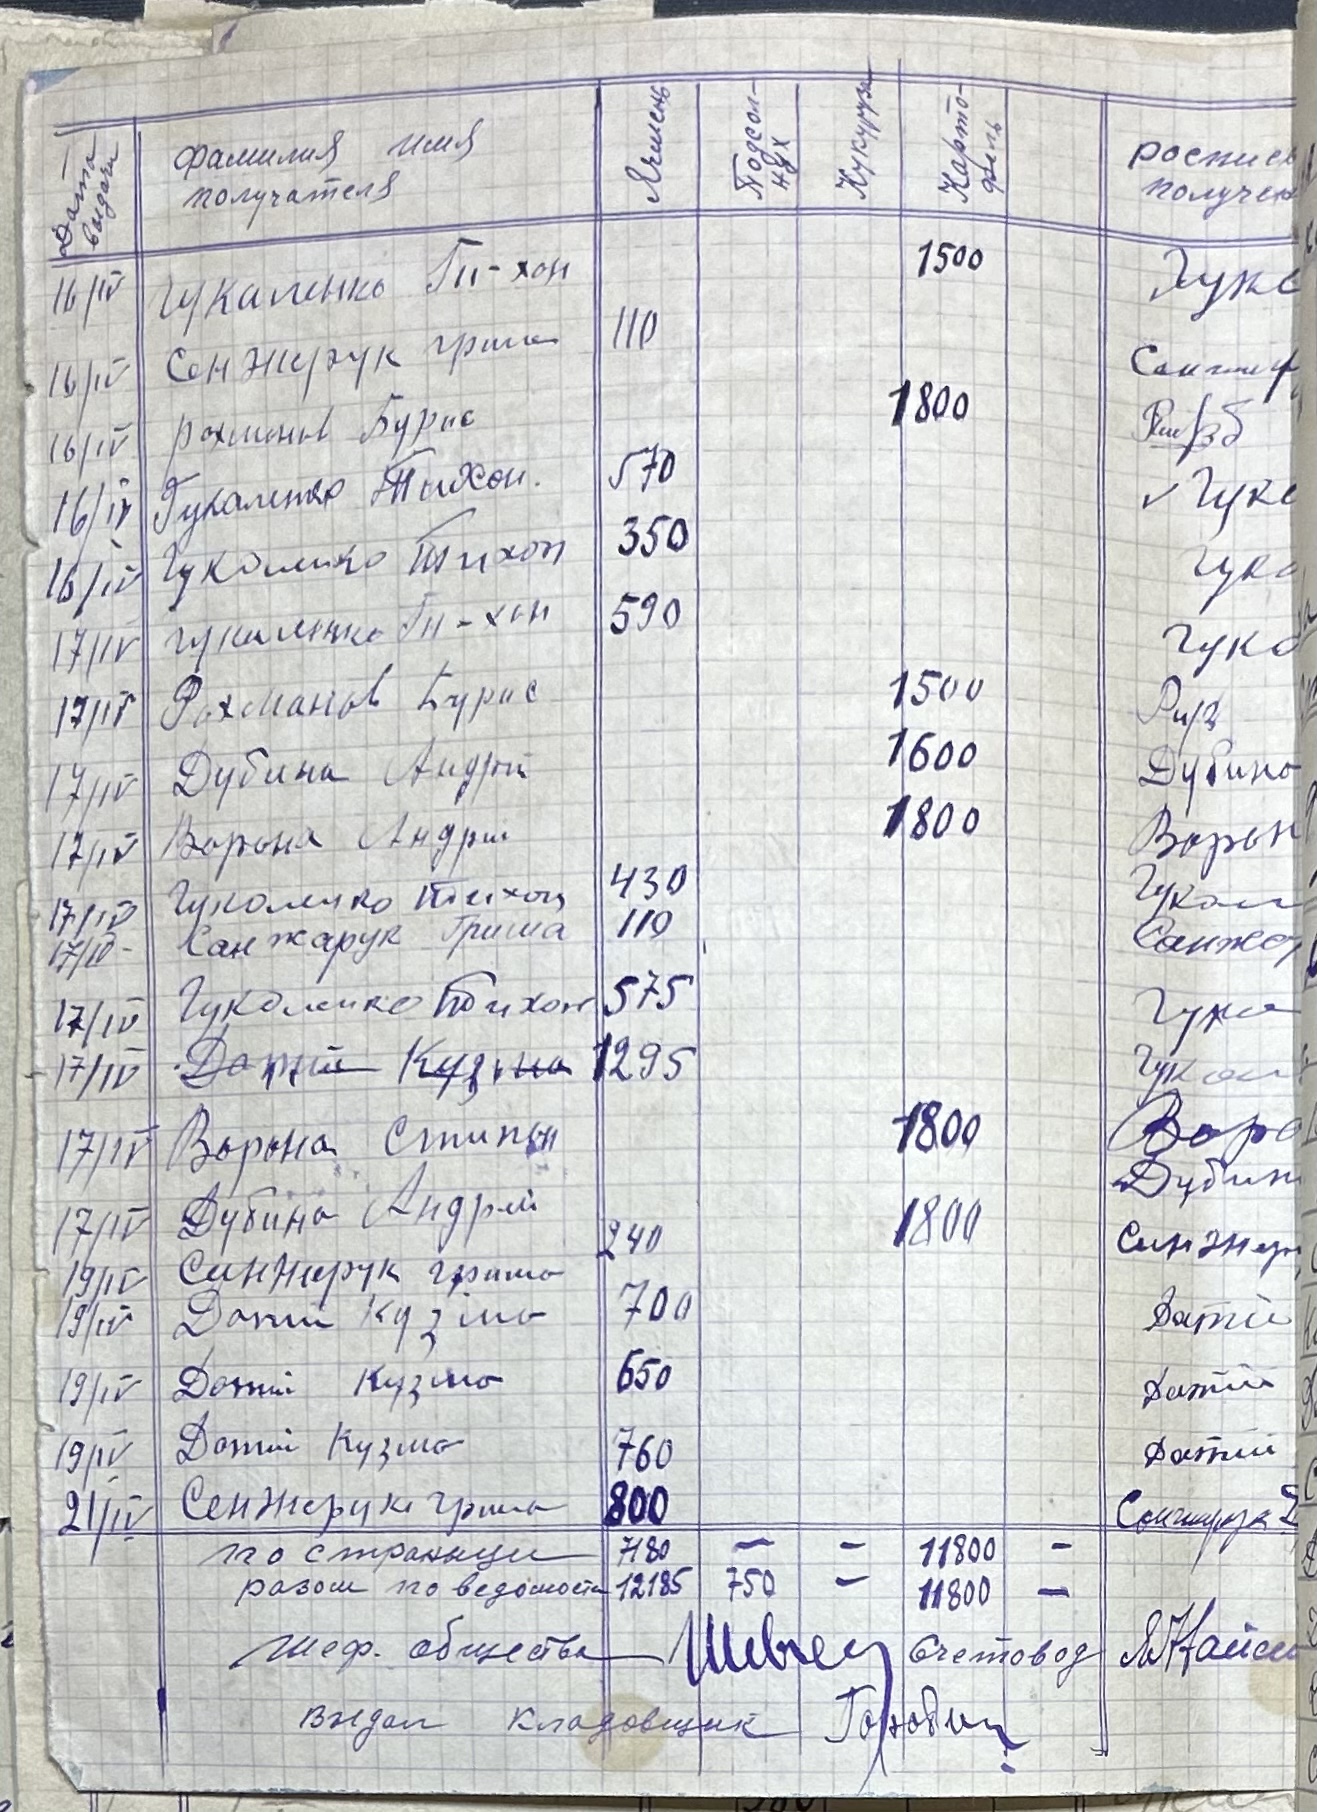 Дата выдачи фамилия имя получателя Ячмень Подсолнух Кукуруза Картофель
16/IV Гукаленко Ти-хон 1500 Гука
16/IV Сенжерук гриша 110
16/IV Рохманов Бурис 1800
16/IV Гукаленко Тихон. 570 ✓ Гука
16/IV Гуколенко Тихон 350 Гука
17/IV Гукаленко Ти-хон 590 Гуко
17/IV Рохманов Бурис 1500
17/IV Дубина Андрій 1600 Дубина
17/IV Ворона Андрій 1800 Ворон
17/IV Гуколенко Тихон 430 Гукал
17/IV - Санжарук Гриша 110 Санжар
17/IV Гуколенко Тихон 575 Гука
17/IV Дотій Кузьма 1295 Гукал
17/IV Ворона Степан 1800 Воро
17/IV Дубина Андрій 1800 Дубин
19/IV Сенжерук гриша 240 Сенжер
19/IV Дотій Кузма 700 Датій
19/IV Дотій Кузма 650 Датій
19/IV Дотій Кузма 760 Датій
21/IV Сенжерук гриша 800
по странице 7180 — - 11800 -
разом по ведомости 12185 750 — 11800 —
Шеф. общества Швец Счетовод
Видал кладовщик